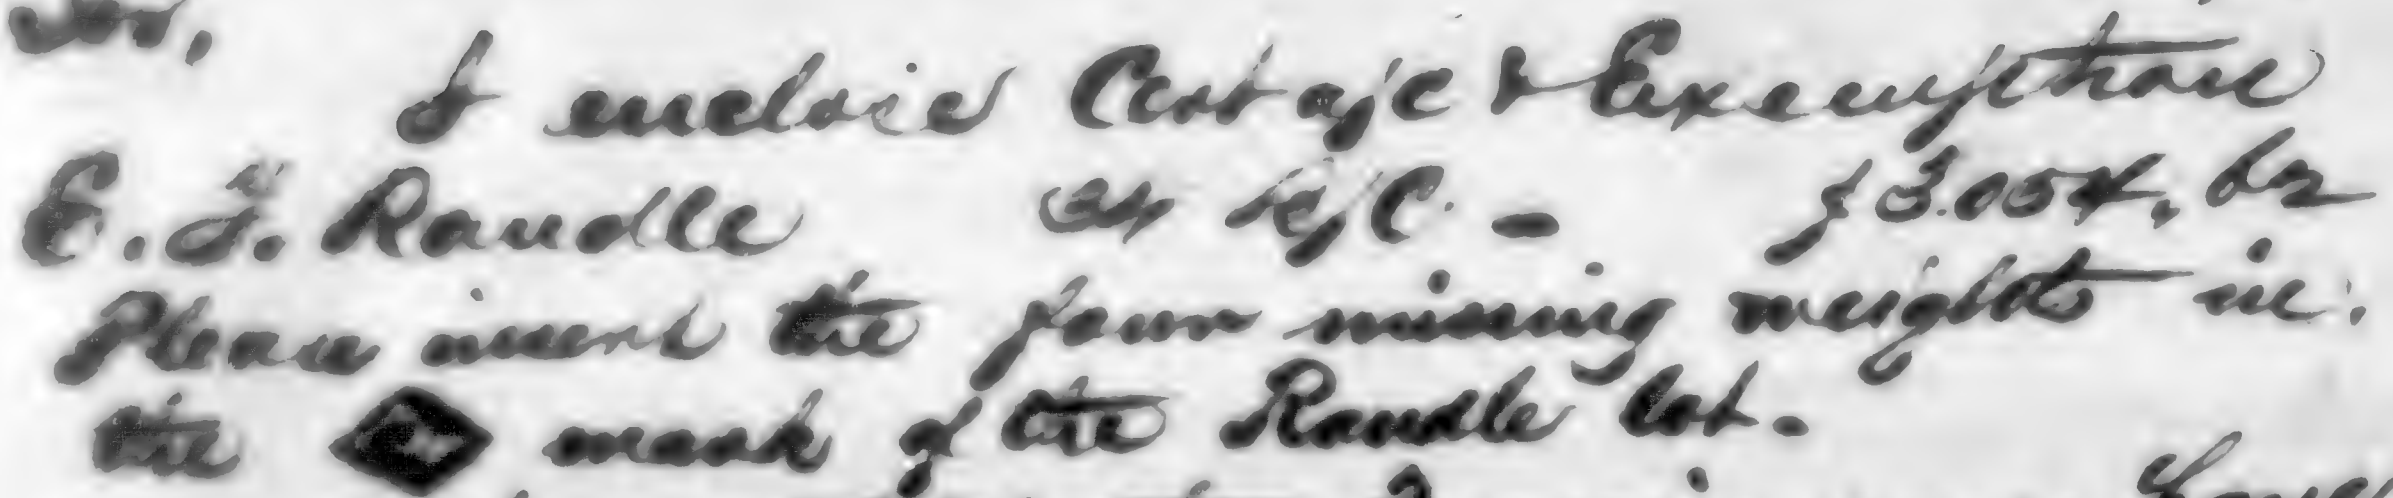 Sir,
I enclose Cert a/c & Exemption
E. F. Randle a/c - £ 3.054.
Please insert the four missing weights in:
the mark of the Randle lot.